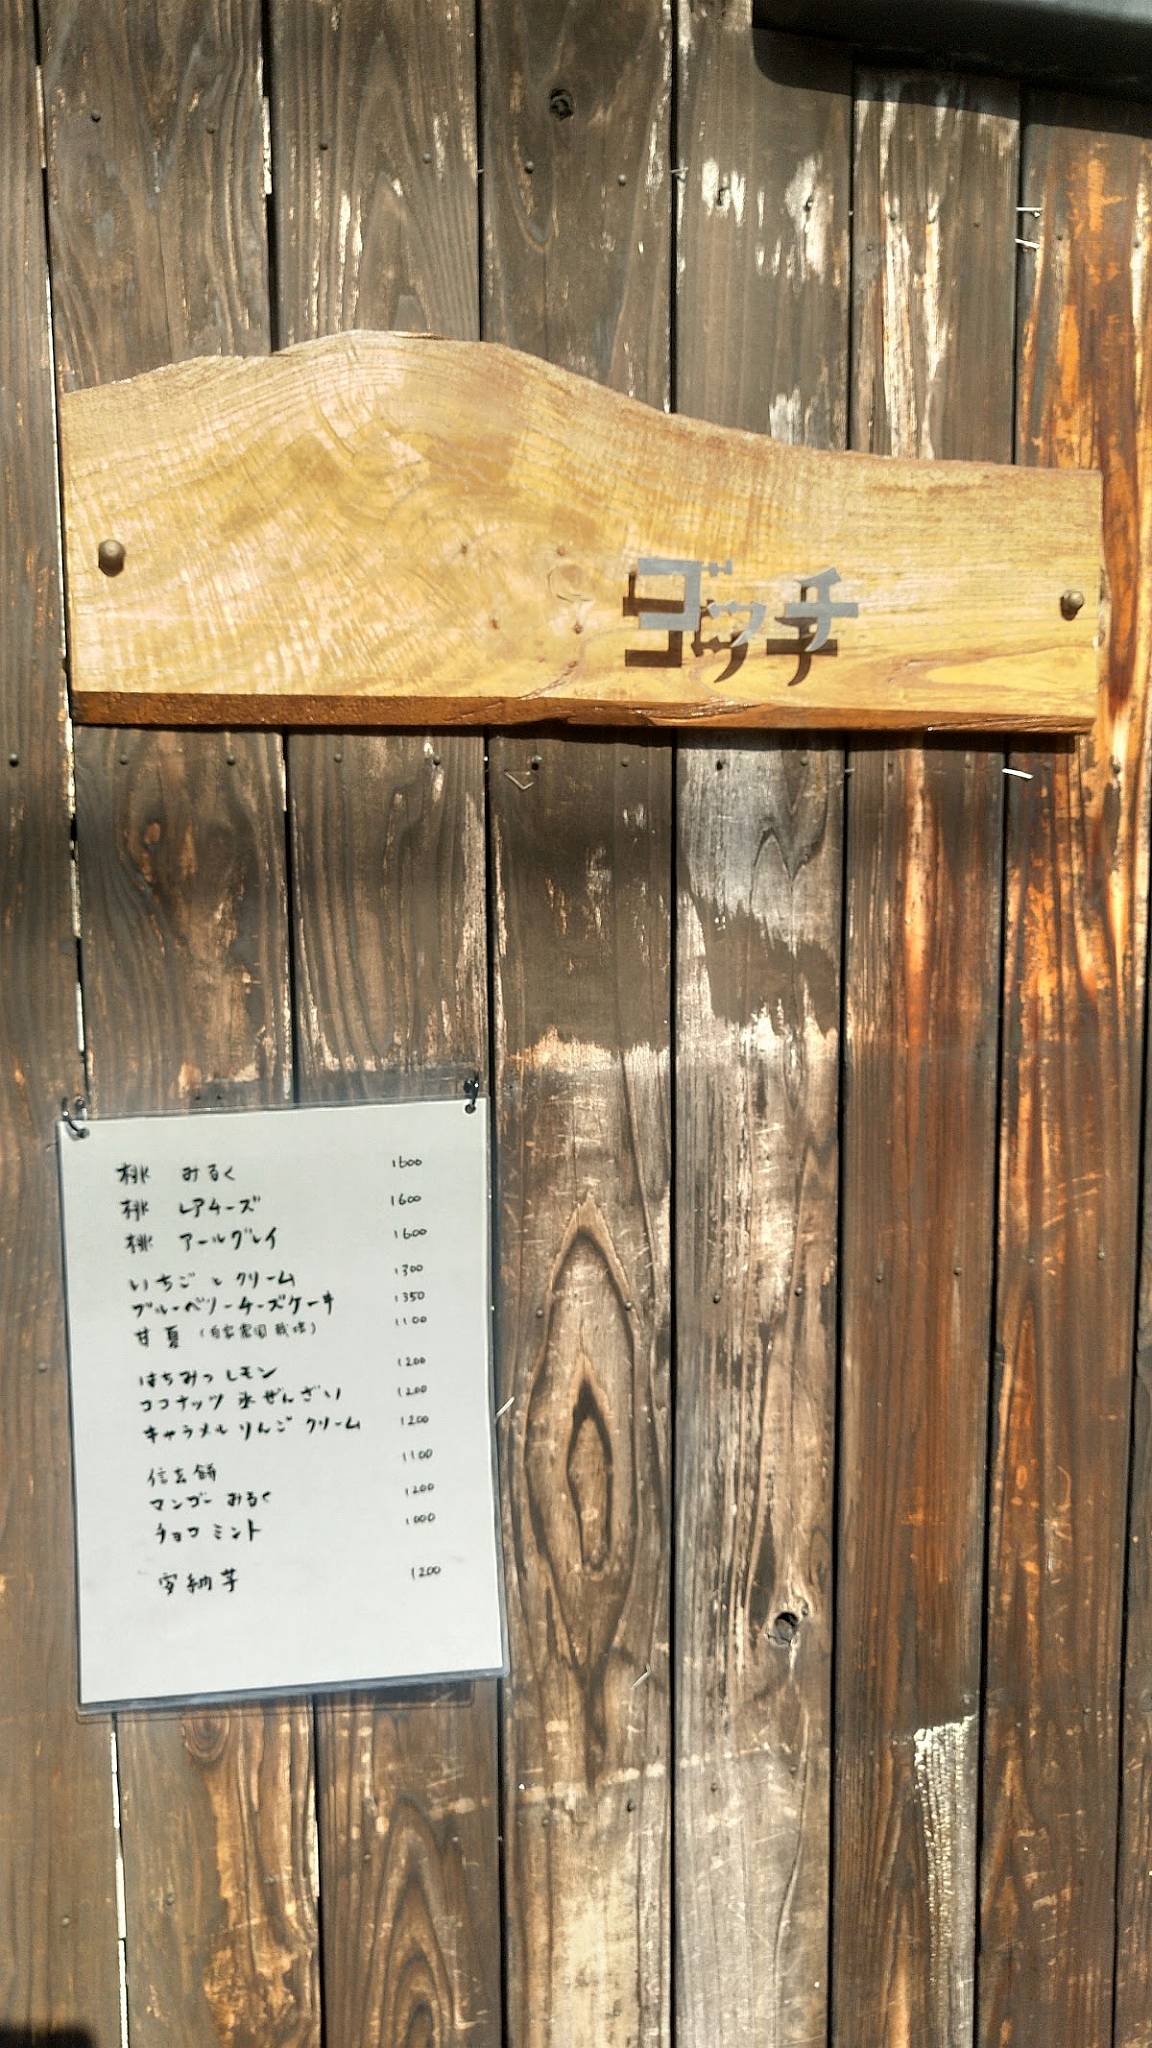 ゴッチ
桃 みるく 1600
桃 レアチーズ 1600
桃 アールグレイ 1600
いちごとクリーム 1300
ブルーベリーチーズケーキ 1350
甘夏 (自家農園栽培) 1100
はちみつレモン 1200
ココナッツ氷ぜんざい 1200
キャラメルりんごクリーム 1200
信玄餅 1100
マンゴーみるく 1200
チョコミント 1000
安納芋 1200